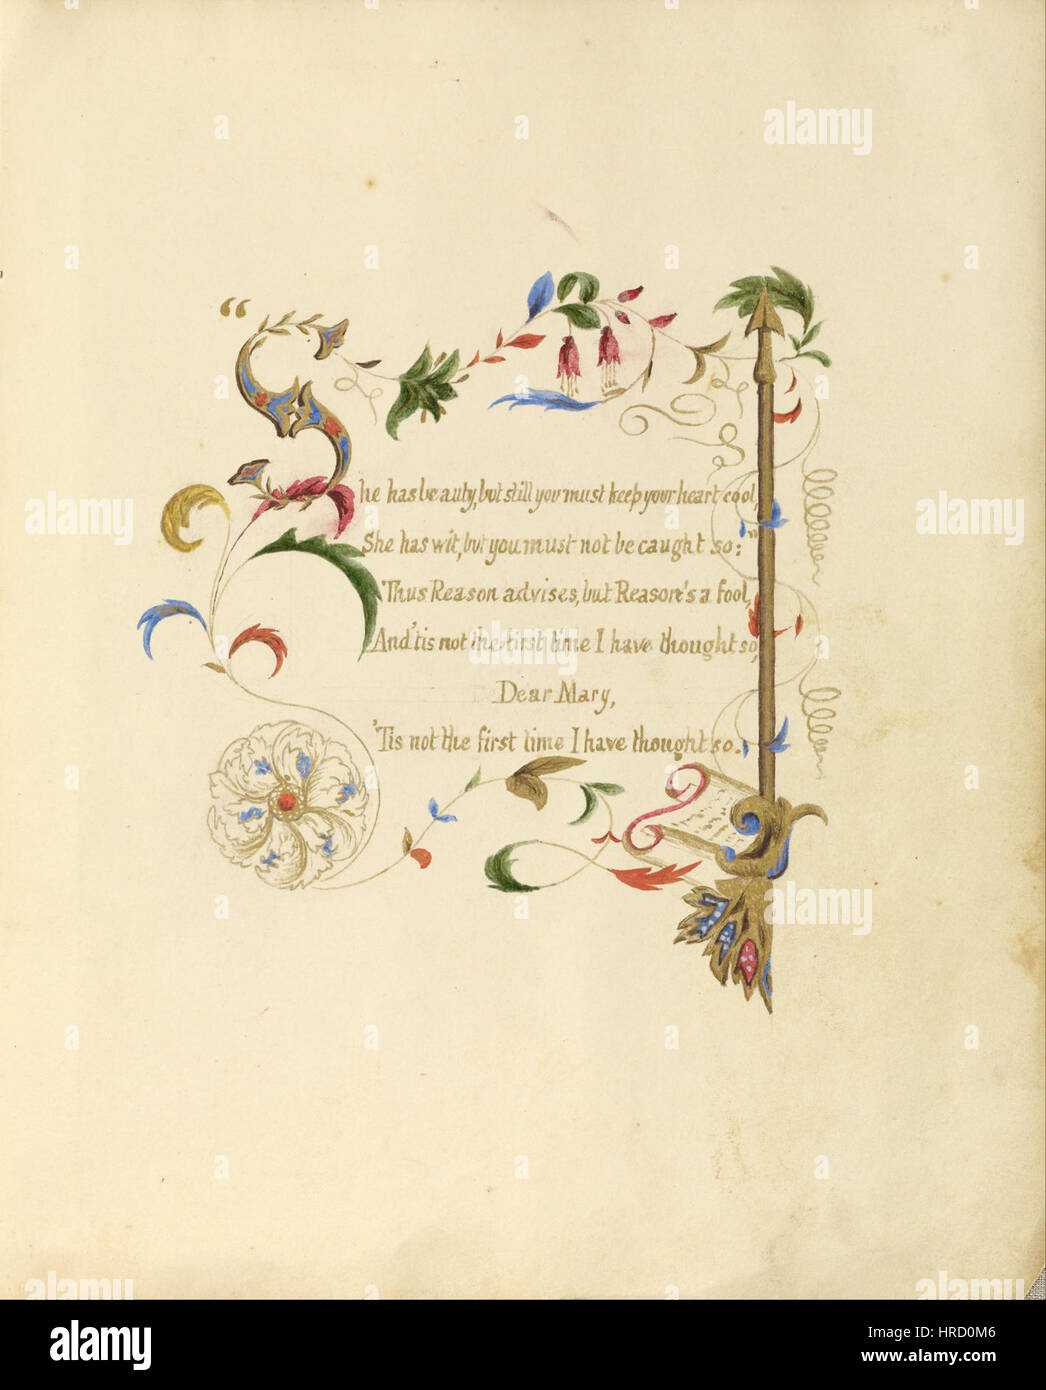 “She has beauty, but still you must keep your heart cool,
She has wit, but you must not be caught so:"
Thus Reason advises, but Reason's a fool,
And 'tis not the first time I have thought so,
Dear Mary,
'Tis not the first time I have thought so.
alamy
alamy
Image ID: HRD0M6
www.alamy.com